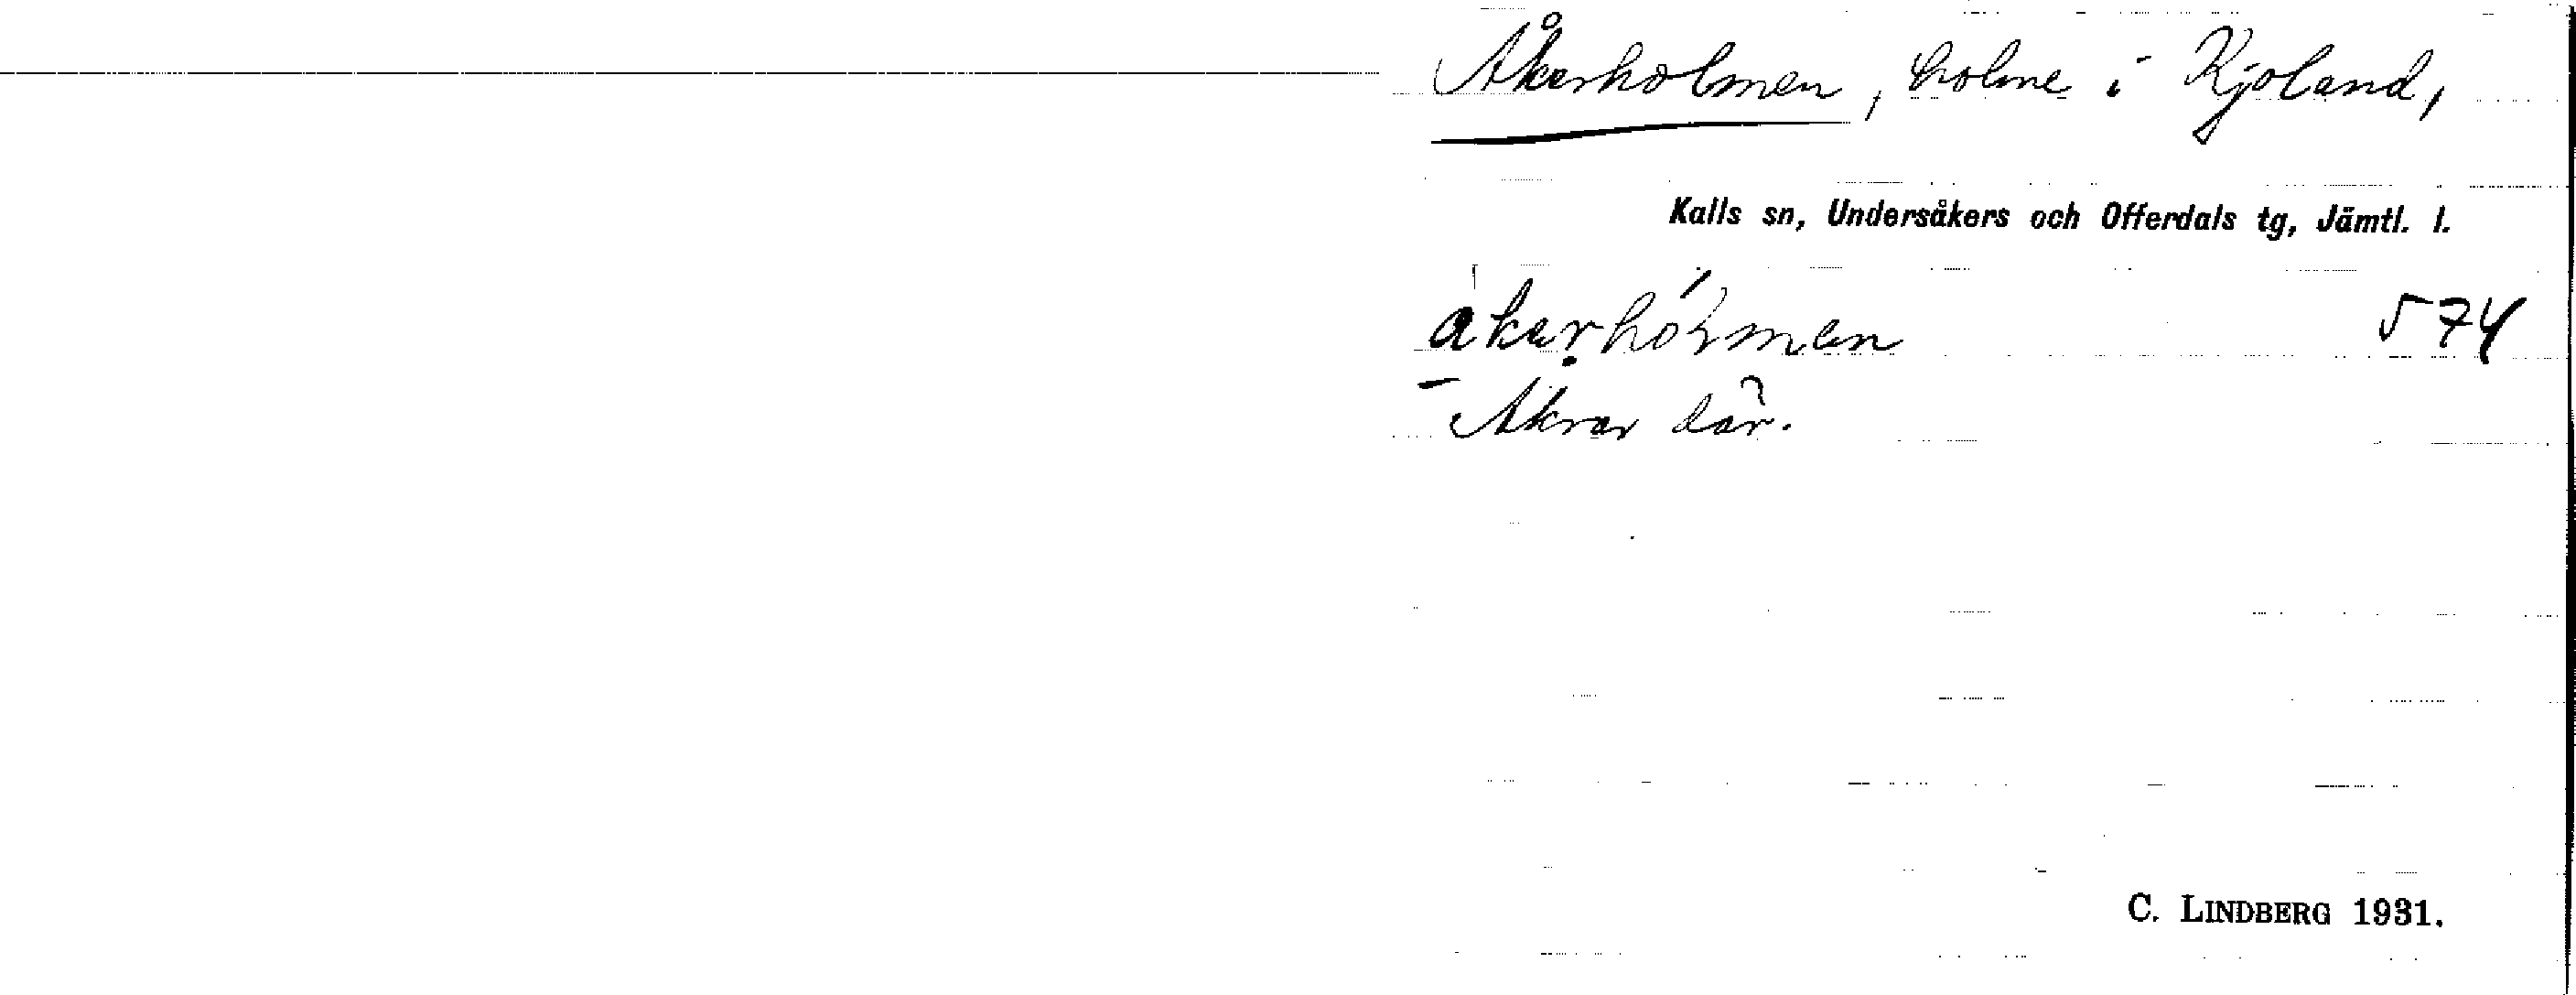 Åkerholmen, holme i Kjoland,
Kalls sn, Undersåkers och Offerdals tg, Jämtl. l.
åkerhólmen 574
– Åkrar där.
C. LINDBERG 1931.